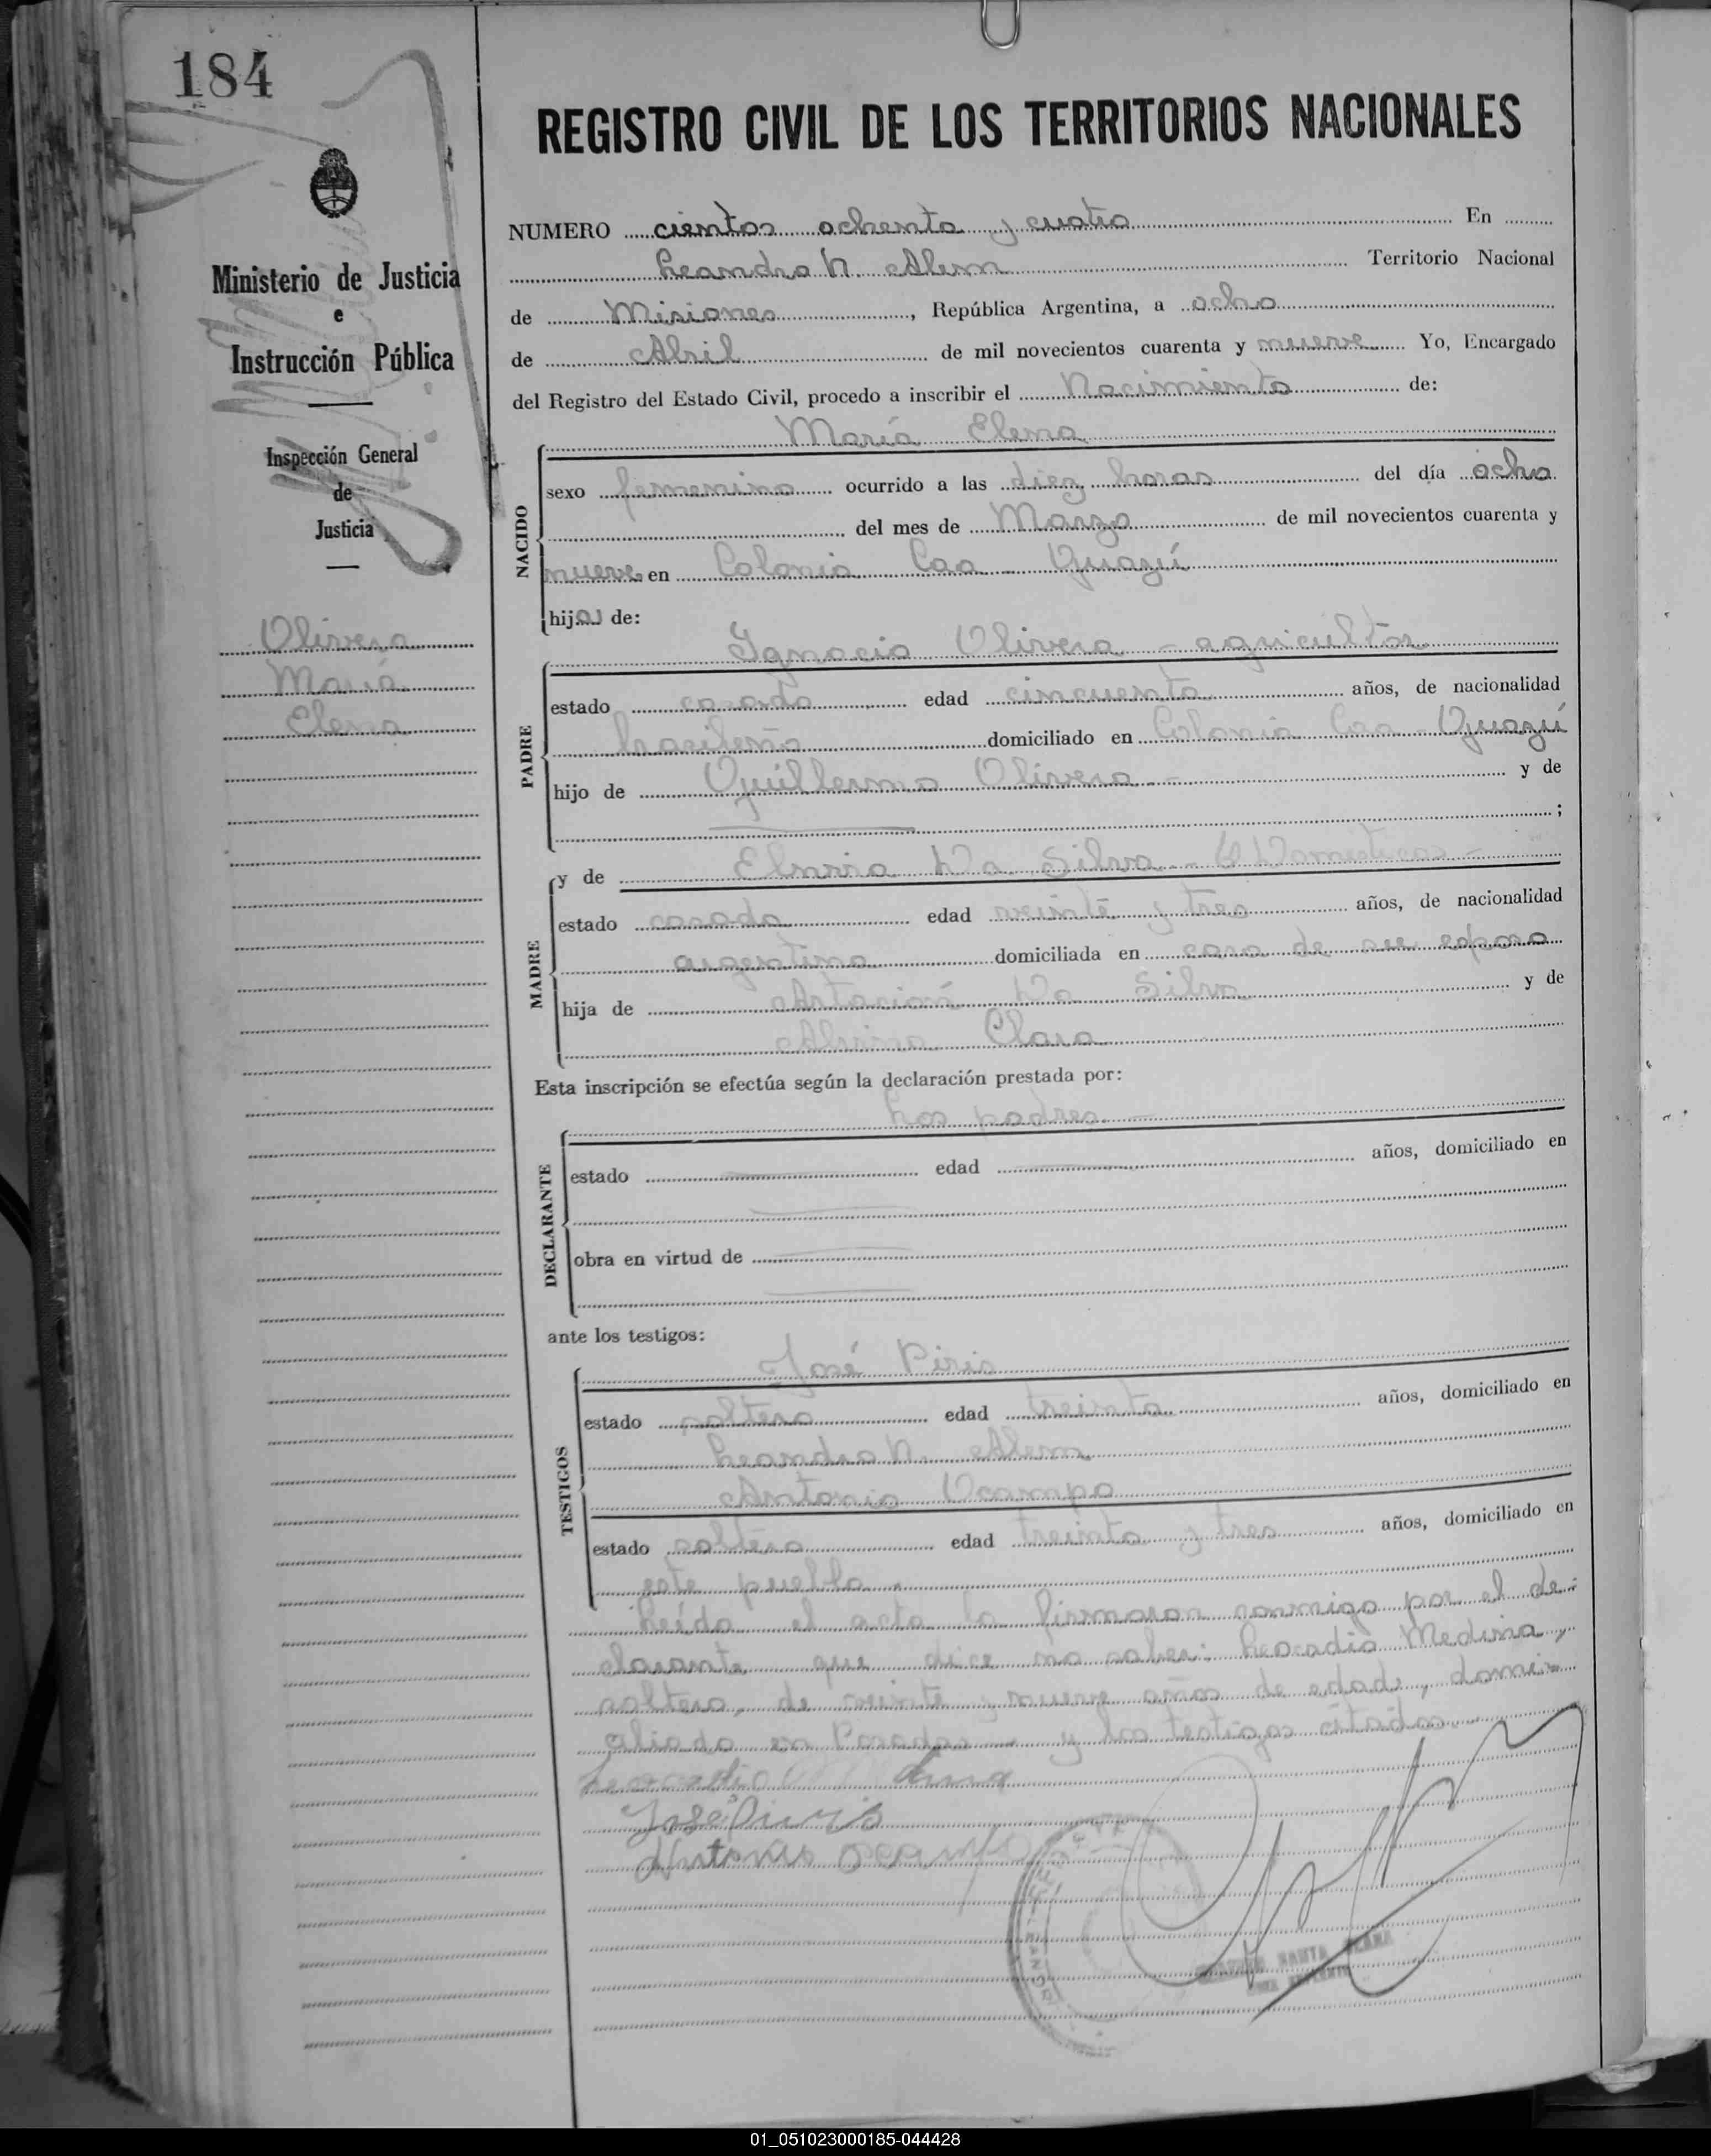 184
REGISTRO CIVIL DE LOS TERRITORIOS NACIONALES
Ministerio de Justicia
e
Instrucción Pública
Inspección General
de
Justicia
Olivera
María
Elena
NUMERO cientos ochenta y cuatro En
Leandro N. Alem Territorio Nacional
de Misiones, República Argentina, a ocho
de Abril de mil novecientos cuarenta y nueve Yo, Encargado
del Registro del Estado Civil, procedo a inscribir el Nacimiento de:
María Elena
NACIDO
sexo femenino ocurrido a las diez horas del día ocho
del mes de Marzo de mil novecientos cuarenta y
nueve en Colonia Caa-Guazú
hija de:
Ignacio Olivera - agricultor
PADRE
estado casado edad cincuenta años, de nacionalidad
brasileño domiciliado en Colonia Caa-Guazú
hijo de Guillermo Olivera - y de
;
y de Da Silva -
MADRE
estado casada edad veinte y tres años, de nacionalidad
argentina domiciliada en casa de su esposo
hija de Da Silva y de
Clara
Esta inscripción se efectúa según la declaración prestada por:
Los padres. -
DECLARANTE
estado edad años, domiciliado en
obra en virtud de
ante los testigos:
José Piris
TESTIGOS
estado soltero edad treinta años, domiciliado en
Leandro N. Alem
Antonio Ocampo
estado soltero edad treinta y tres años, domiciliado en
este pueblo.
Leída el acta la firmaron conmigo por el de-
clarante que dice no saber: Leocadio Medina,
soltero, de veinte y nueve años de edad, domi-
ciliado en Posadas - y los testigos citados
Leocadio Medina
José Piris
Antonio Ocampo
SANTA
01_051023000185-044428